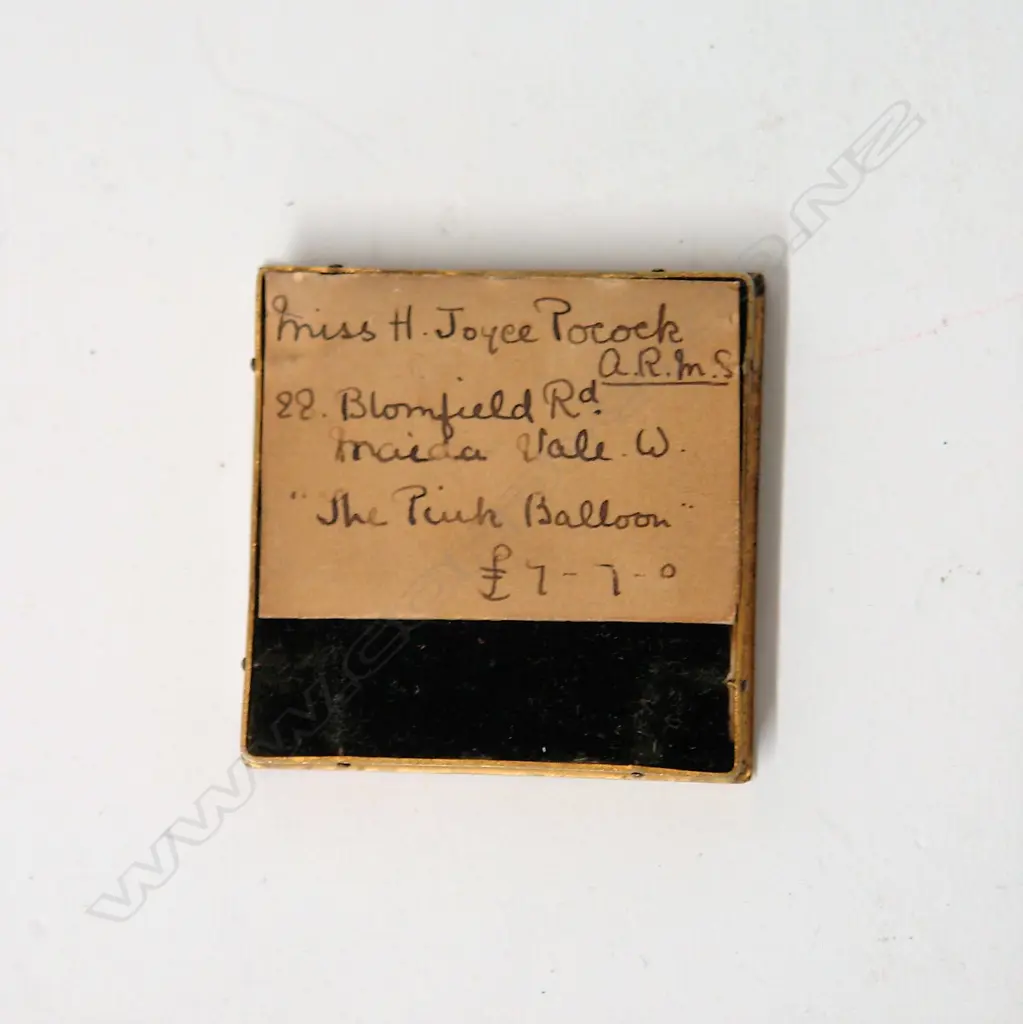 Miss H. Joyce Pocock
A.R.M.S
22. Blomfield Rd.
Maida Vale. W.
"The Pink Balloon"
£7-7-0